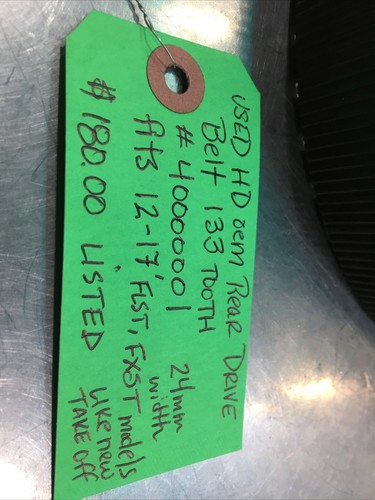 USED HD oem REAR DRIVE
Belt 133 TOOTH
# 40000001 24mm width
fits 12-17', FLST, FXST models
$180.00 LISTED Like new TAKE OFF